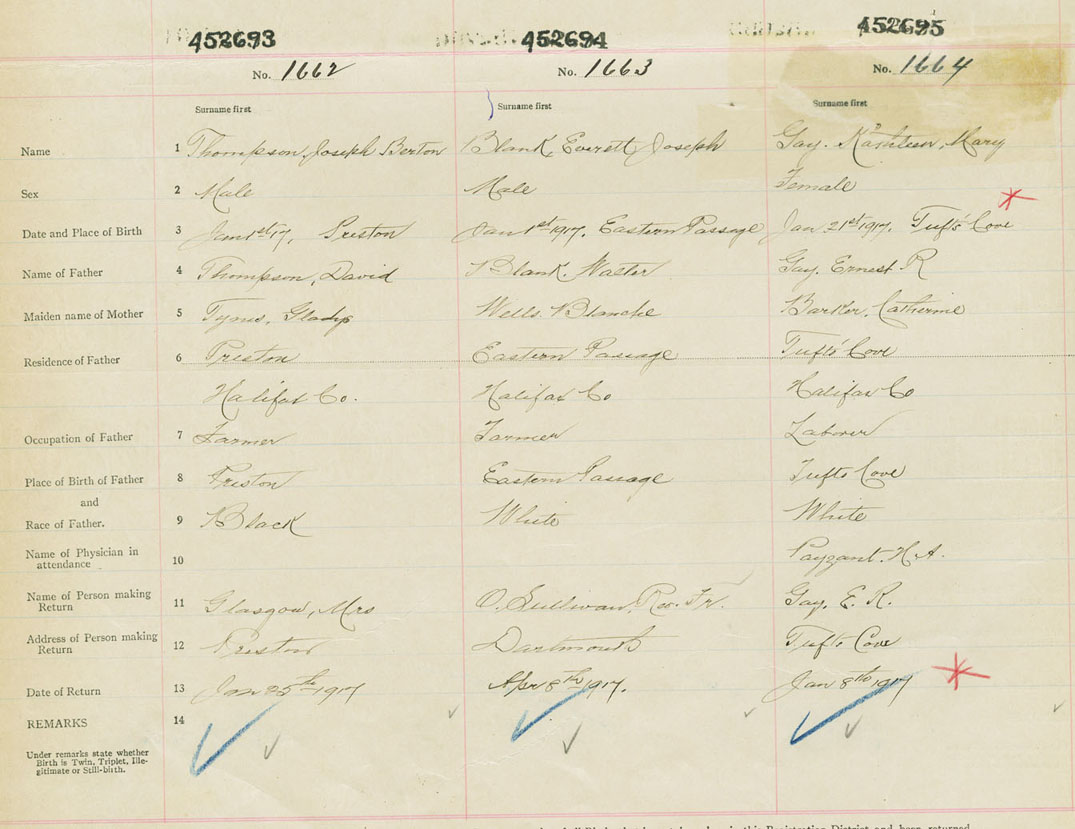 452693 452694 452695
No. 1662 No. 1663 No. 1664
Surname first Surname first Surname first
Name 1 Thompson, Joseph Berton Blank, Everett Joseph Gay. Kathleen, Mary
Sex 2 Male Male Female
Date and Place of Birth 3 Jan 1st 17, Preston Jan 1st 1917. Eastern Passage Jan 21st 1917, Tufts Cove
Name of Father 4 Thompson, David Blank. Walter Gay. Ernest R
Maiden name of Mother 5 Tynes, Gladys Wells. Blanche Barker, Catherine
Residence of Father 6 Preston Eastern Passage Tufts Cove
Halifax Co. Halifax Co Halifax Co
Occupation of Father 7 Farmer Farmer Laborer
Place of Birth of Father 8 Preston Eastern Passage Tufts Cove
and
Race of Father. 9 Black White White
Name of Physician in
attendance 10 Payzant. H. A.
Name of Person making
Return 11 Glasgow, Mrs O. Sullivan, Rev. Fr. Gay, E. R.
Address of Person making
Return 12 Preston Dartmouth Tufts Cove
Date of Return 13 Jan 25th 1917 Apr 8th 1917. Jan 8th 1917
REMARKS 14
Under remarks state whether
Birth is Twin, Triplet, Ille-
gitimate or Still-birth.